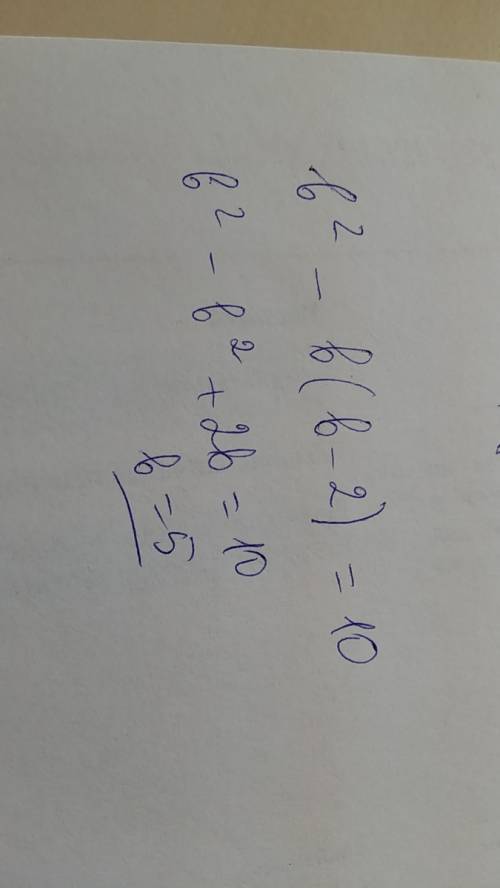 b² - b(b-2) = 10
b² - b² + 2b = 10
b = 5